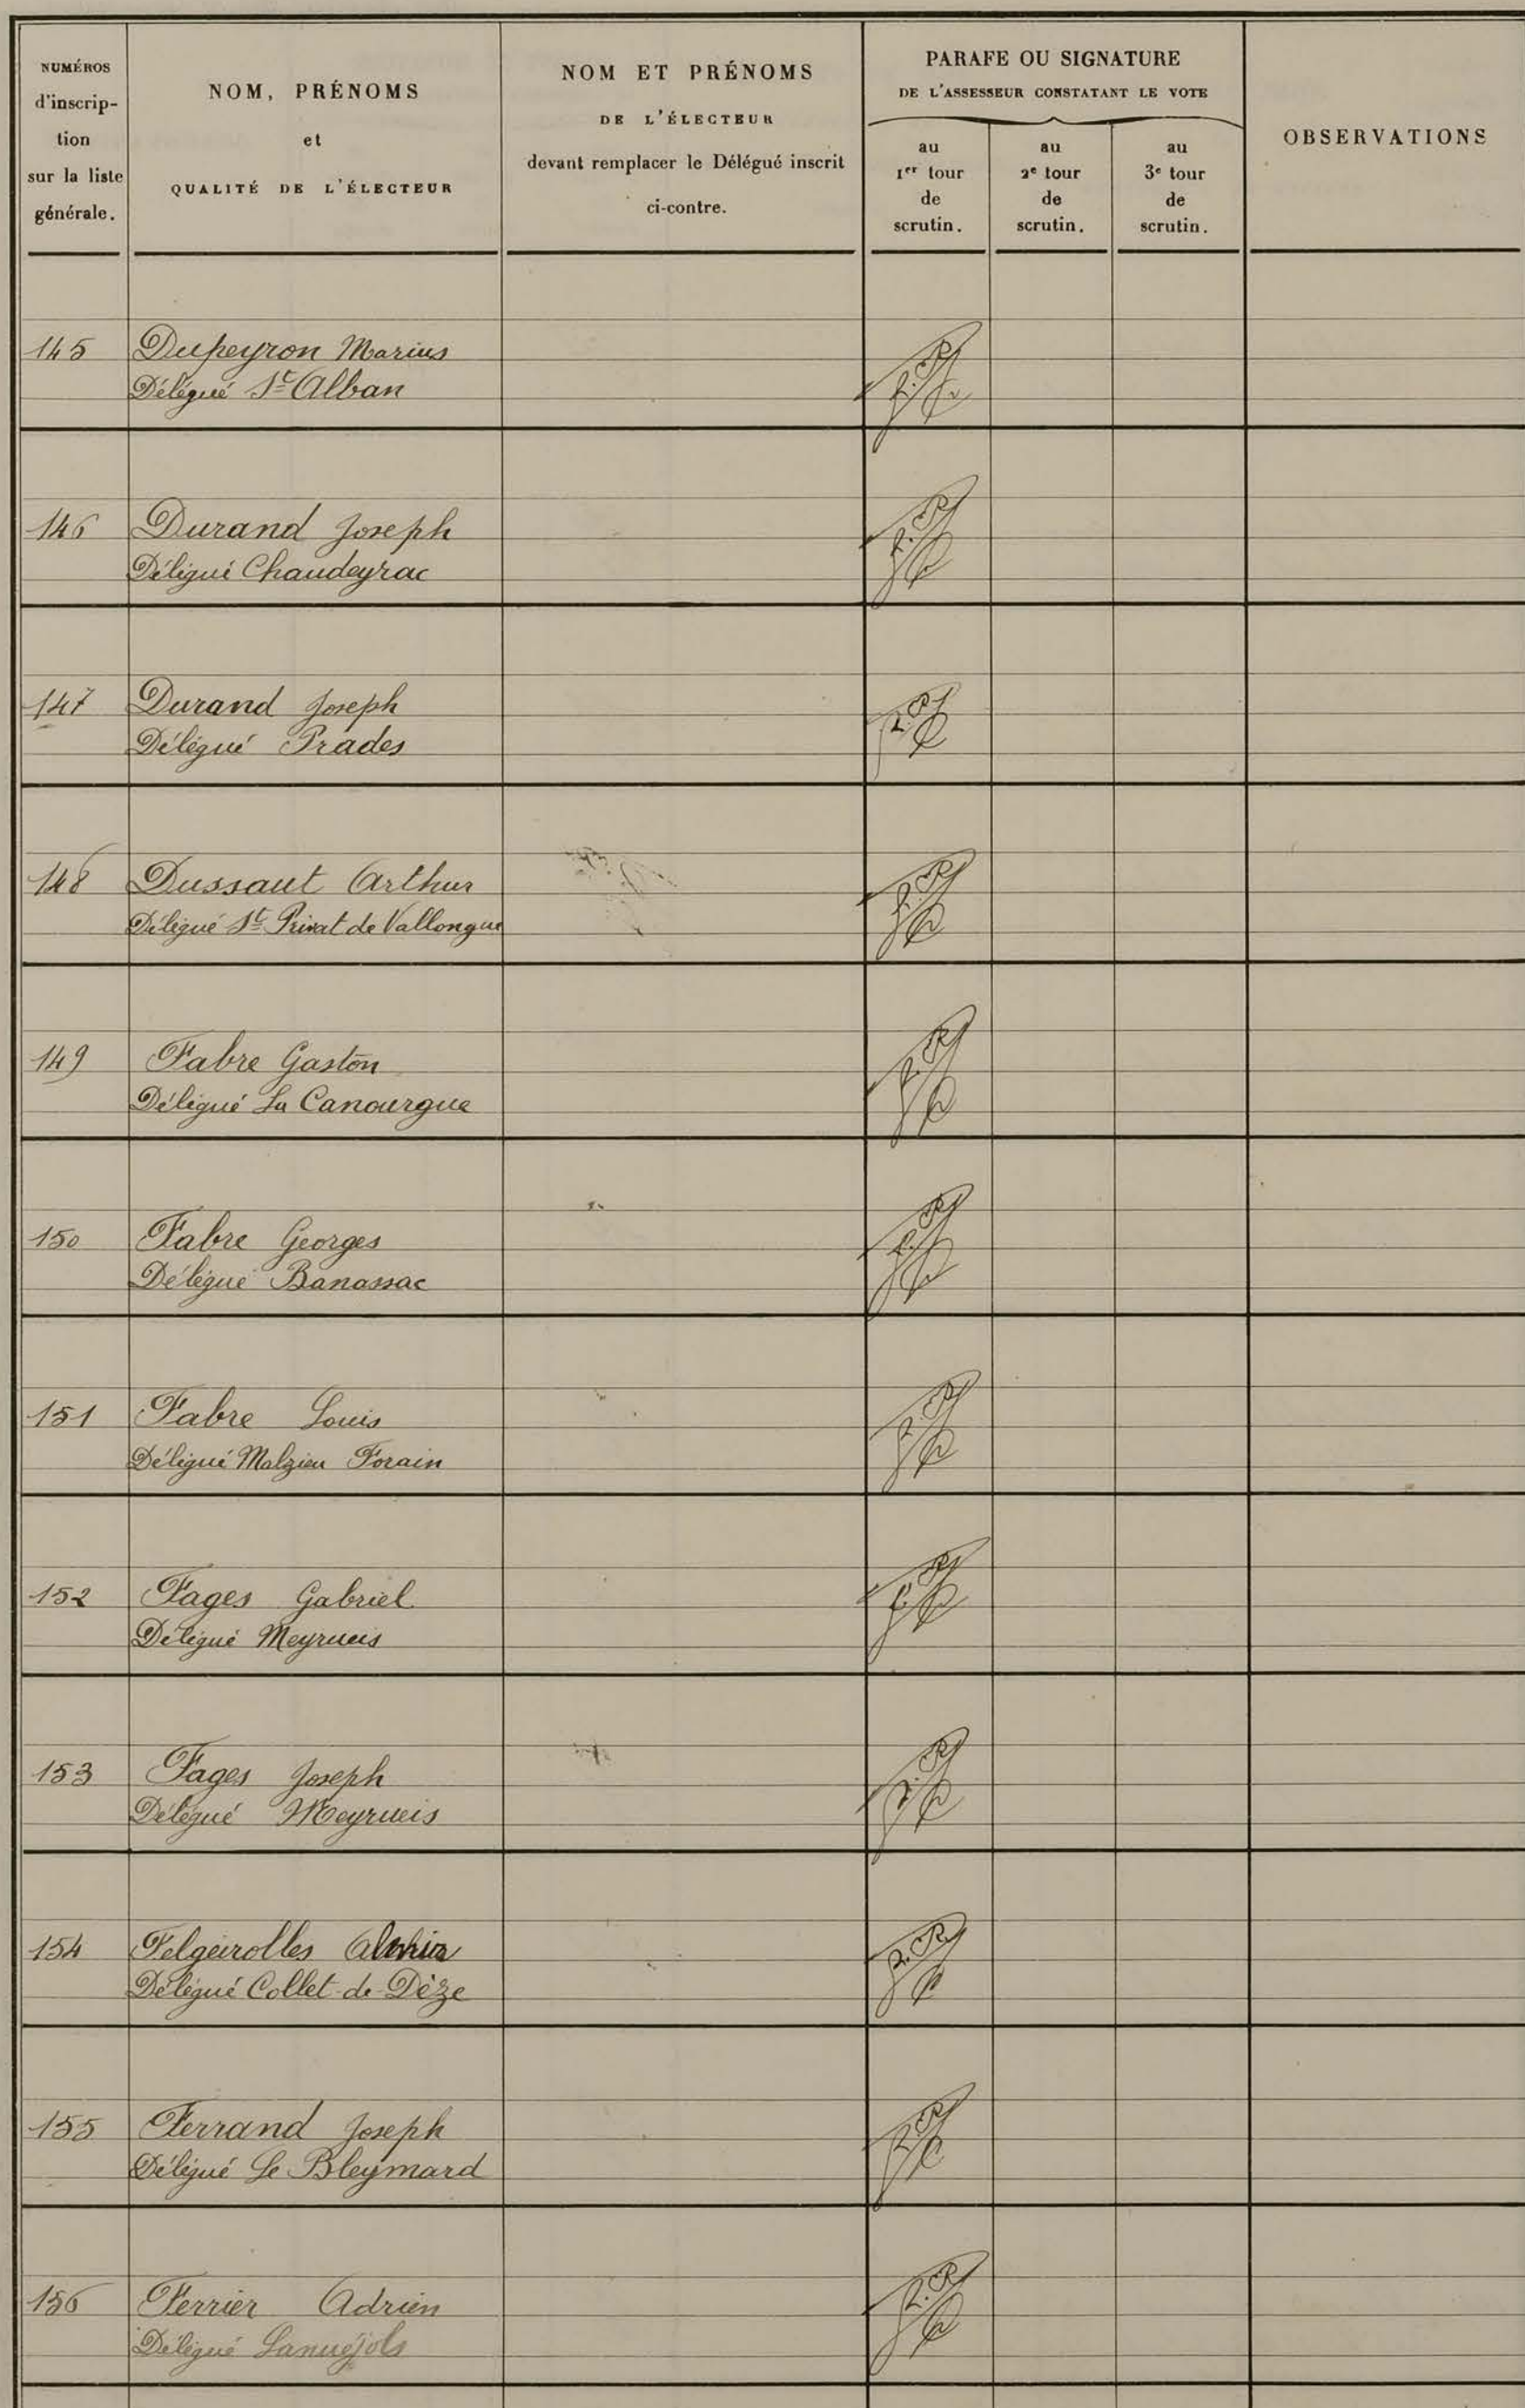 NUMÉROS
d'inscrip-
tion
sur la liste
générale.
NOM, PRÉNOMS
et
QUALITÉ DE L'ÉLECTEUR
NOM ET PRÉNOMS
DE L'ÉLECTEUR
devant remplacer le Délégué inscrit
ci-contre.
PARAFE OU SIGNATURE
DE L'ASSESSEUR CONSTATANT LE VOTE
au
1er tour
de
scrutin.
au
2e tour
de
scrutin.
au
3e tour
de
scrutin.
OBSERVATIONS
145 Dupeyron Marius
Délégué St Alban
146 Durand Joseph
Délégué Chaudeyrac
147 Durand Joseph
Délégué Prades
148 Dussaut Arthur
Délégué St Privat de Vallongue
149 Fabre Gaston
Délégué La Canourgue
150 Fabre Georges
Délégué Banassac
151 Fabre Louis
Délégué Malzieu Forain
152 Fages Gabriel
Délégué Meyrueis
153 Fages Joseph
Délégué Meyrueis
154 Felgeirolles
Délégué Collet-de-Dèze
155 Ferrand Joseph
Délégué Le Bleymard
156 Ferrier Adrien
Délégué Lanuéjols